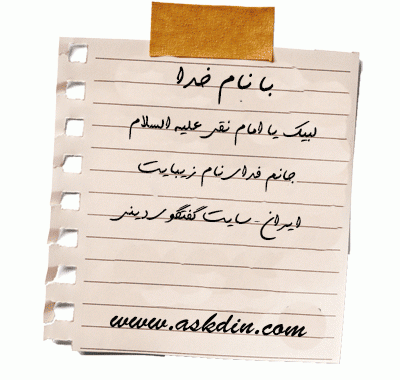 با نام خدا
لبیک یا امام نقی علیه السلام
جانم فدای نام زیبایت
ایران - سایت گفتگوی دینی
www.askdin.com